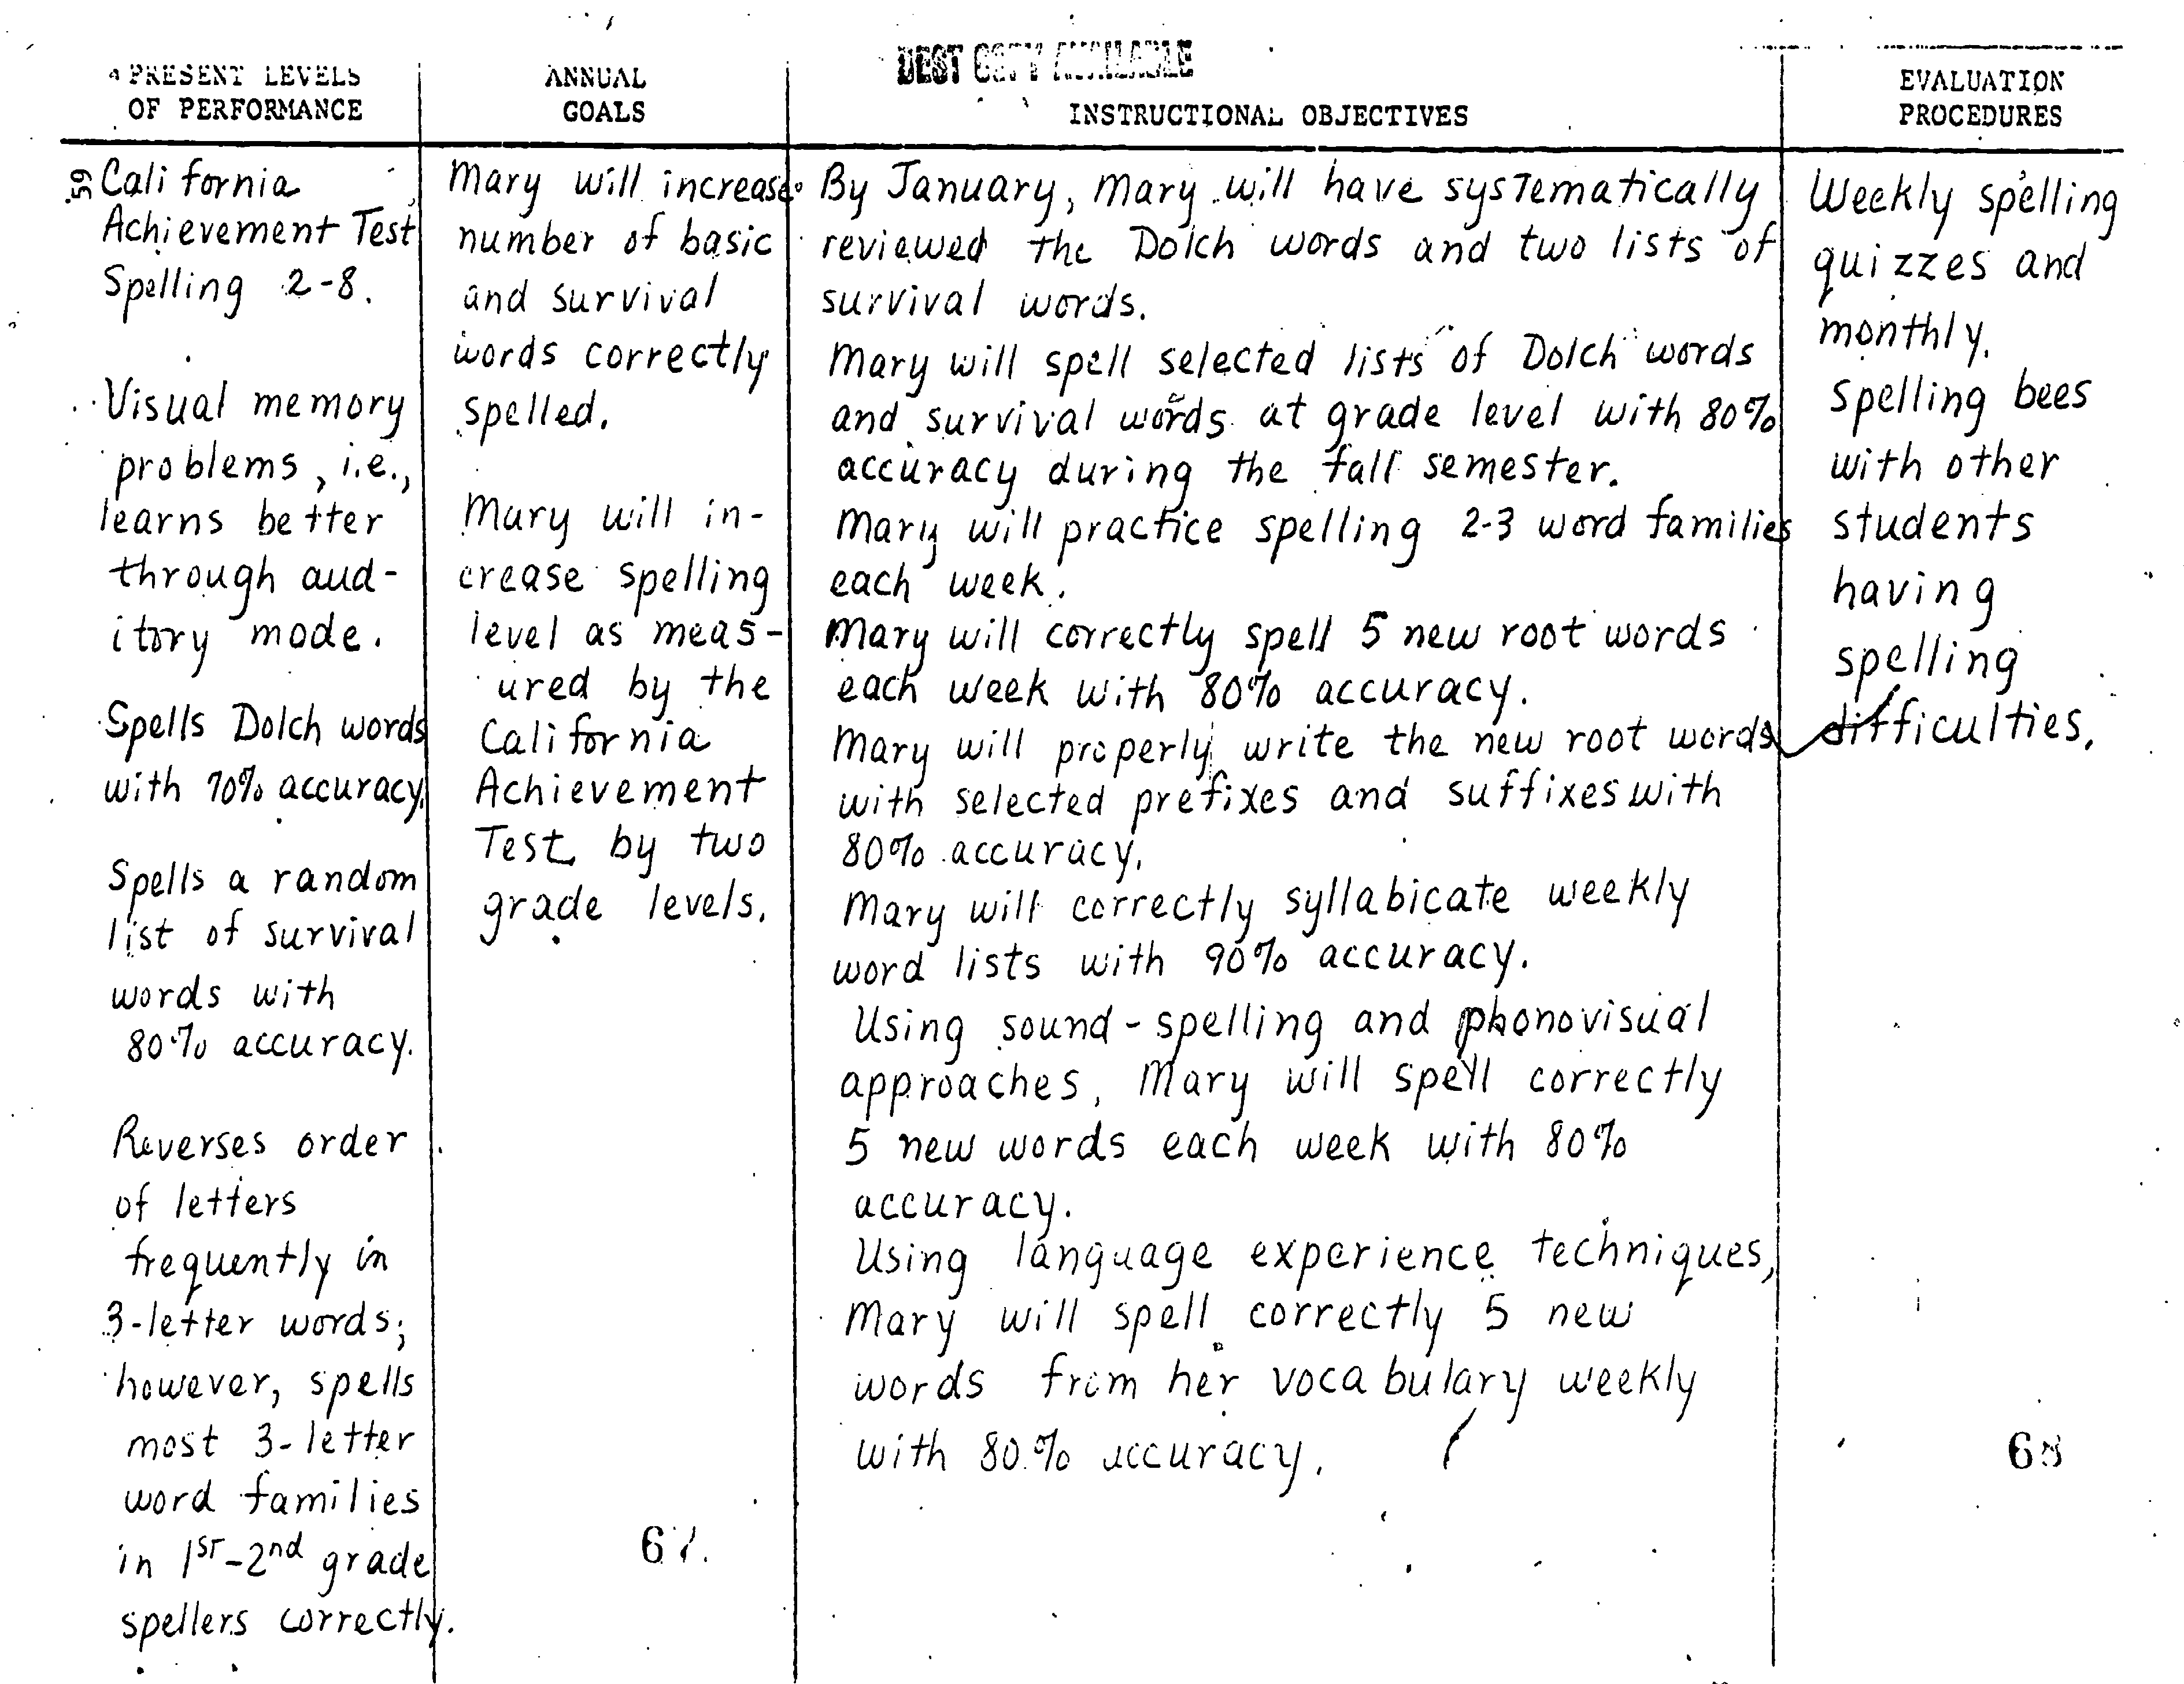 BEST COPY AVAILABLE
PRESENT LEVELS
OF PERFORMANCE
59
California
Achievement Test
Spelling 2-8.
Visual memory
problems, i.e.,
learns better
through aud-
itory mode.
Spells Dolch words
with 70% accuracy.
Spells a random
list of survival
words with
80% accuracy.
Reverses order
of letters
frequently in
3-letter words;
however, spells
most 3-letter
word families
in 1st-2nd grade
spellers correctly.
ANNUAL
GOALS
Mary will increase
number of basic
and survival
words correctly
spelled.
Mary will in-
crease spelling
level as meas-
ured by the
California
Achievement
Test by two
grade levels.
67
INSTRUCTIONAL OBJECTIVES
By January, Mary will have systematically
reviewed the Dolch words and two lists of
survival words.
Mary will spell selected lists of Dolch words
and survival words at grade level with 80%
accuracy during the fall semester.
Mary will practice spelling 2-3 word families
each week.
Mary will correctly spell 5 new root words
each week with 80% accuracy.
Mary will properly write the new root words
with selected prefixes and suffixes with
80% accuracy.
Mary will correctly syllabicate weekly
word lists with 90% accuracy.
Using sound-spelling and phonovisual
approaches, Mary will spell correctly
5 new words each week with 80%
accuracy.
Using language experience techniques,
Mary will spell correctly 5 new
words from her vocabulary weekly
with 80% accuracy.
EVALUATION
PROCEDURES
Weekly spelling
quizzes and
monthly.
spelling bees
with other
students
having
spelling
difficulties.
68